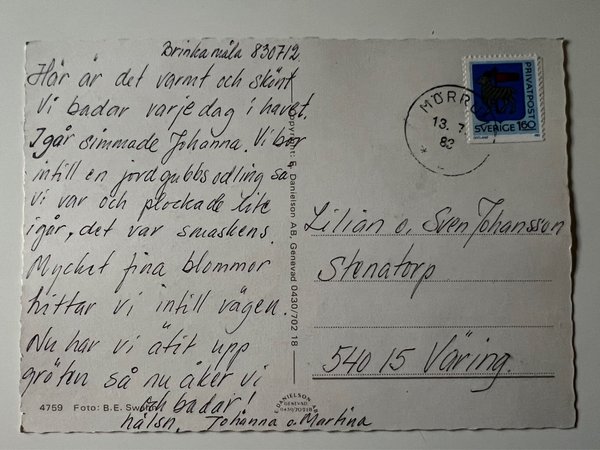 Brinkamåla 830712
Här är det varmt och skönt
Vi badar varje dag i havet.
Igår simmade Johanna. Vi bor
intill en jordgubbsodling så
vi var och plockade lite
igår, det var smaskens.
Mycket fina blommor
hittar vi intill vägen.
Nu har vi ätit upp
gröten så nu åker vi
och badar!
hälsn. Johanna o. Martina
4759 Foto: B.E.
Copyright: E. Danielson AB, Genevad 0430/702 18
E. DANIELSON AB
GENEVAD
0430/70218
MÖRRU
13. 7
83
PRIVATPOST
SVERIGE 160
GOTLAND
Lilian o. Sven Johansson
Stenatorp
540 15 Väring.